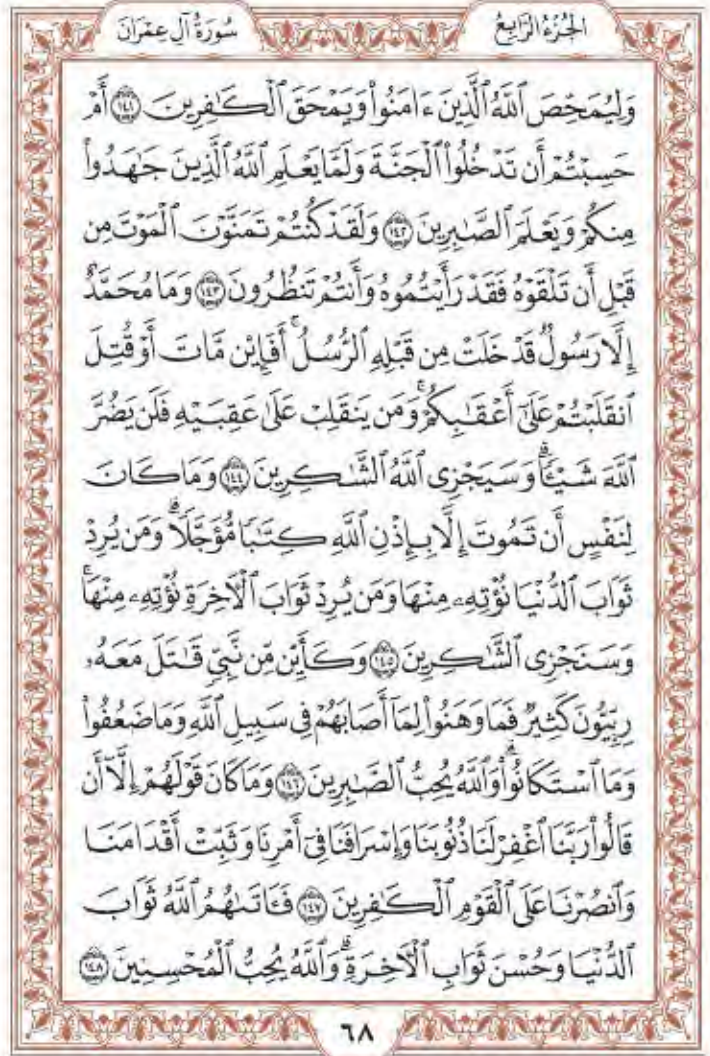 الجُزْءُ الرَّابِعُ
سُورَةُ آلِ عِمْرَانَ
وَلِيُمَحِّصَ ٱللَّهُ ٱلَّذِينَ ءَامَنُواْ وَيَمْحَقَ ٱلْكَٰفِرِينَ ١٤١ أَمْ
حَسِبْتُمْ أَن تَدْخُلُواْ ٱلْجَنَّةَ وَلَمَّا يَعْلَمِ ٱللَّهُ ٱلَّذِينَ جَٰهَدُواْ
مِنكُمْ وَيَعْلَمَ ٱلصَّٰبِرِينَ ١٤٢ وَلَقَدْ كُنتُمْ تَمَنَّوْنَ ٱلْمَوْتَ مِن
قَبْلِ أَن تَلْقَوْهُ فَقَدْ رَأَيْتُمُوهُ وَأَنتُمْ تَنظُرُونَ ١٤٣ وَمَا مُحَمَّدٌ
إِلَّا رَسُولٌ قَدْ خَلَتْ مِن قَبْلِهِ ٱلرُّسُلُ ۚ أَفَإِيْن مَّاتَ أَوْ قُتِلَ
ٱنقَلَبْتُمْ عَلَىٰٓ أَعْقَٰبِكُمْ ۚ وَمَن يَنقَلِبْ عَلَىٰ عَقِبَيْهِ فَلَن يَضُرَّ
ٱللَّهَ شَيْـًٔا ۗ وَسَيَجْزِى ٱللَّهُ ٱلشَّٰكِرِينَ ١٤٤ وَمَا كَانَ
لِنَفْسٍ أَن تَمُوتَ إِلَّا بِإِذْنِ ٱللَّهِ كِتَٰبًا مُّؤَجَّلًا ۗ وَمَن يُرِدْ
ثَوَابَ ٱلدُّنْيَا نُؤْتِهِۦ مِنْهَا وَمَن يُرِدْ ثَوَابَ ٱلْءَاخِرَةِ نُؤْتِهِۦ مِنْهَا ۚ
وَسَنَجْزِى ٱلشَّٰكِرِينَ ١٤٥ وَكَأَيِّن مِّن نَّبِىٍّ قَٰتَلَ مَعَهُۥ
رِبِّيُّونَ كَثِيرٌ فَمَا وَهَنُواْ لِمَآ أَصَابَهُمْ فِى سَبِيلِ ٱللَّهِ وَمَا ضَعُفُواْ
وَمَا ٱسْتَكَانُواْ ۗ وَٱللَّهُ يُحِبُّ ٱلصَّٰبِرِينَ ١٤٦ وَمَا كَانَ قَوْلَهُمْ إِلَّآ أَن
قَالُواْ رَبَّنَا ٱغْفِرْ لَنَا ذُنُوبَنَا وَإِسْرَافَنَا فِىٓ أَمْرِنَا وَثَبِّتْ أَقْدَامَنَا
وَٱنصُرْنَا عَلَى ٱلْقَوْمِ ٱلْكَٰفِرِينَ ١٤٧ فَـَٔاتَىٰهُمُ ٱللَّهُ ثَوَابَ
ٱلدُّنْيَا وَحُسْنَ ثَوَابِ ٱلْءَاخِرَةِ ۗ وَٱللَّهُ يُحِبُّ ٱلْمُحْسِنِينَ ١٤٨
٦٨